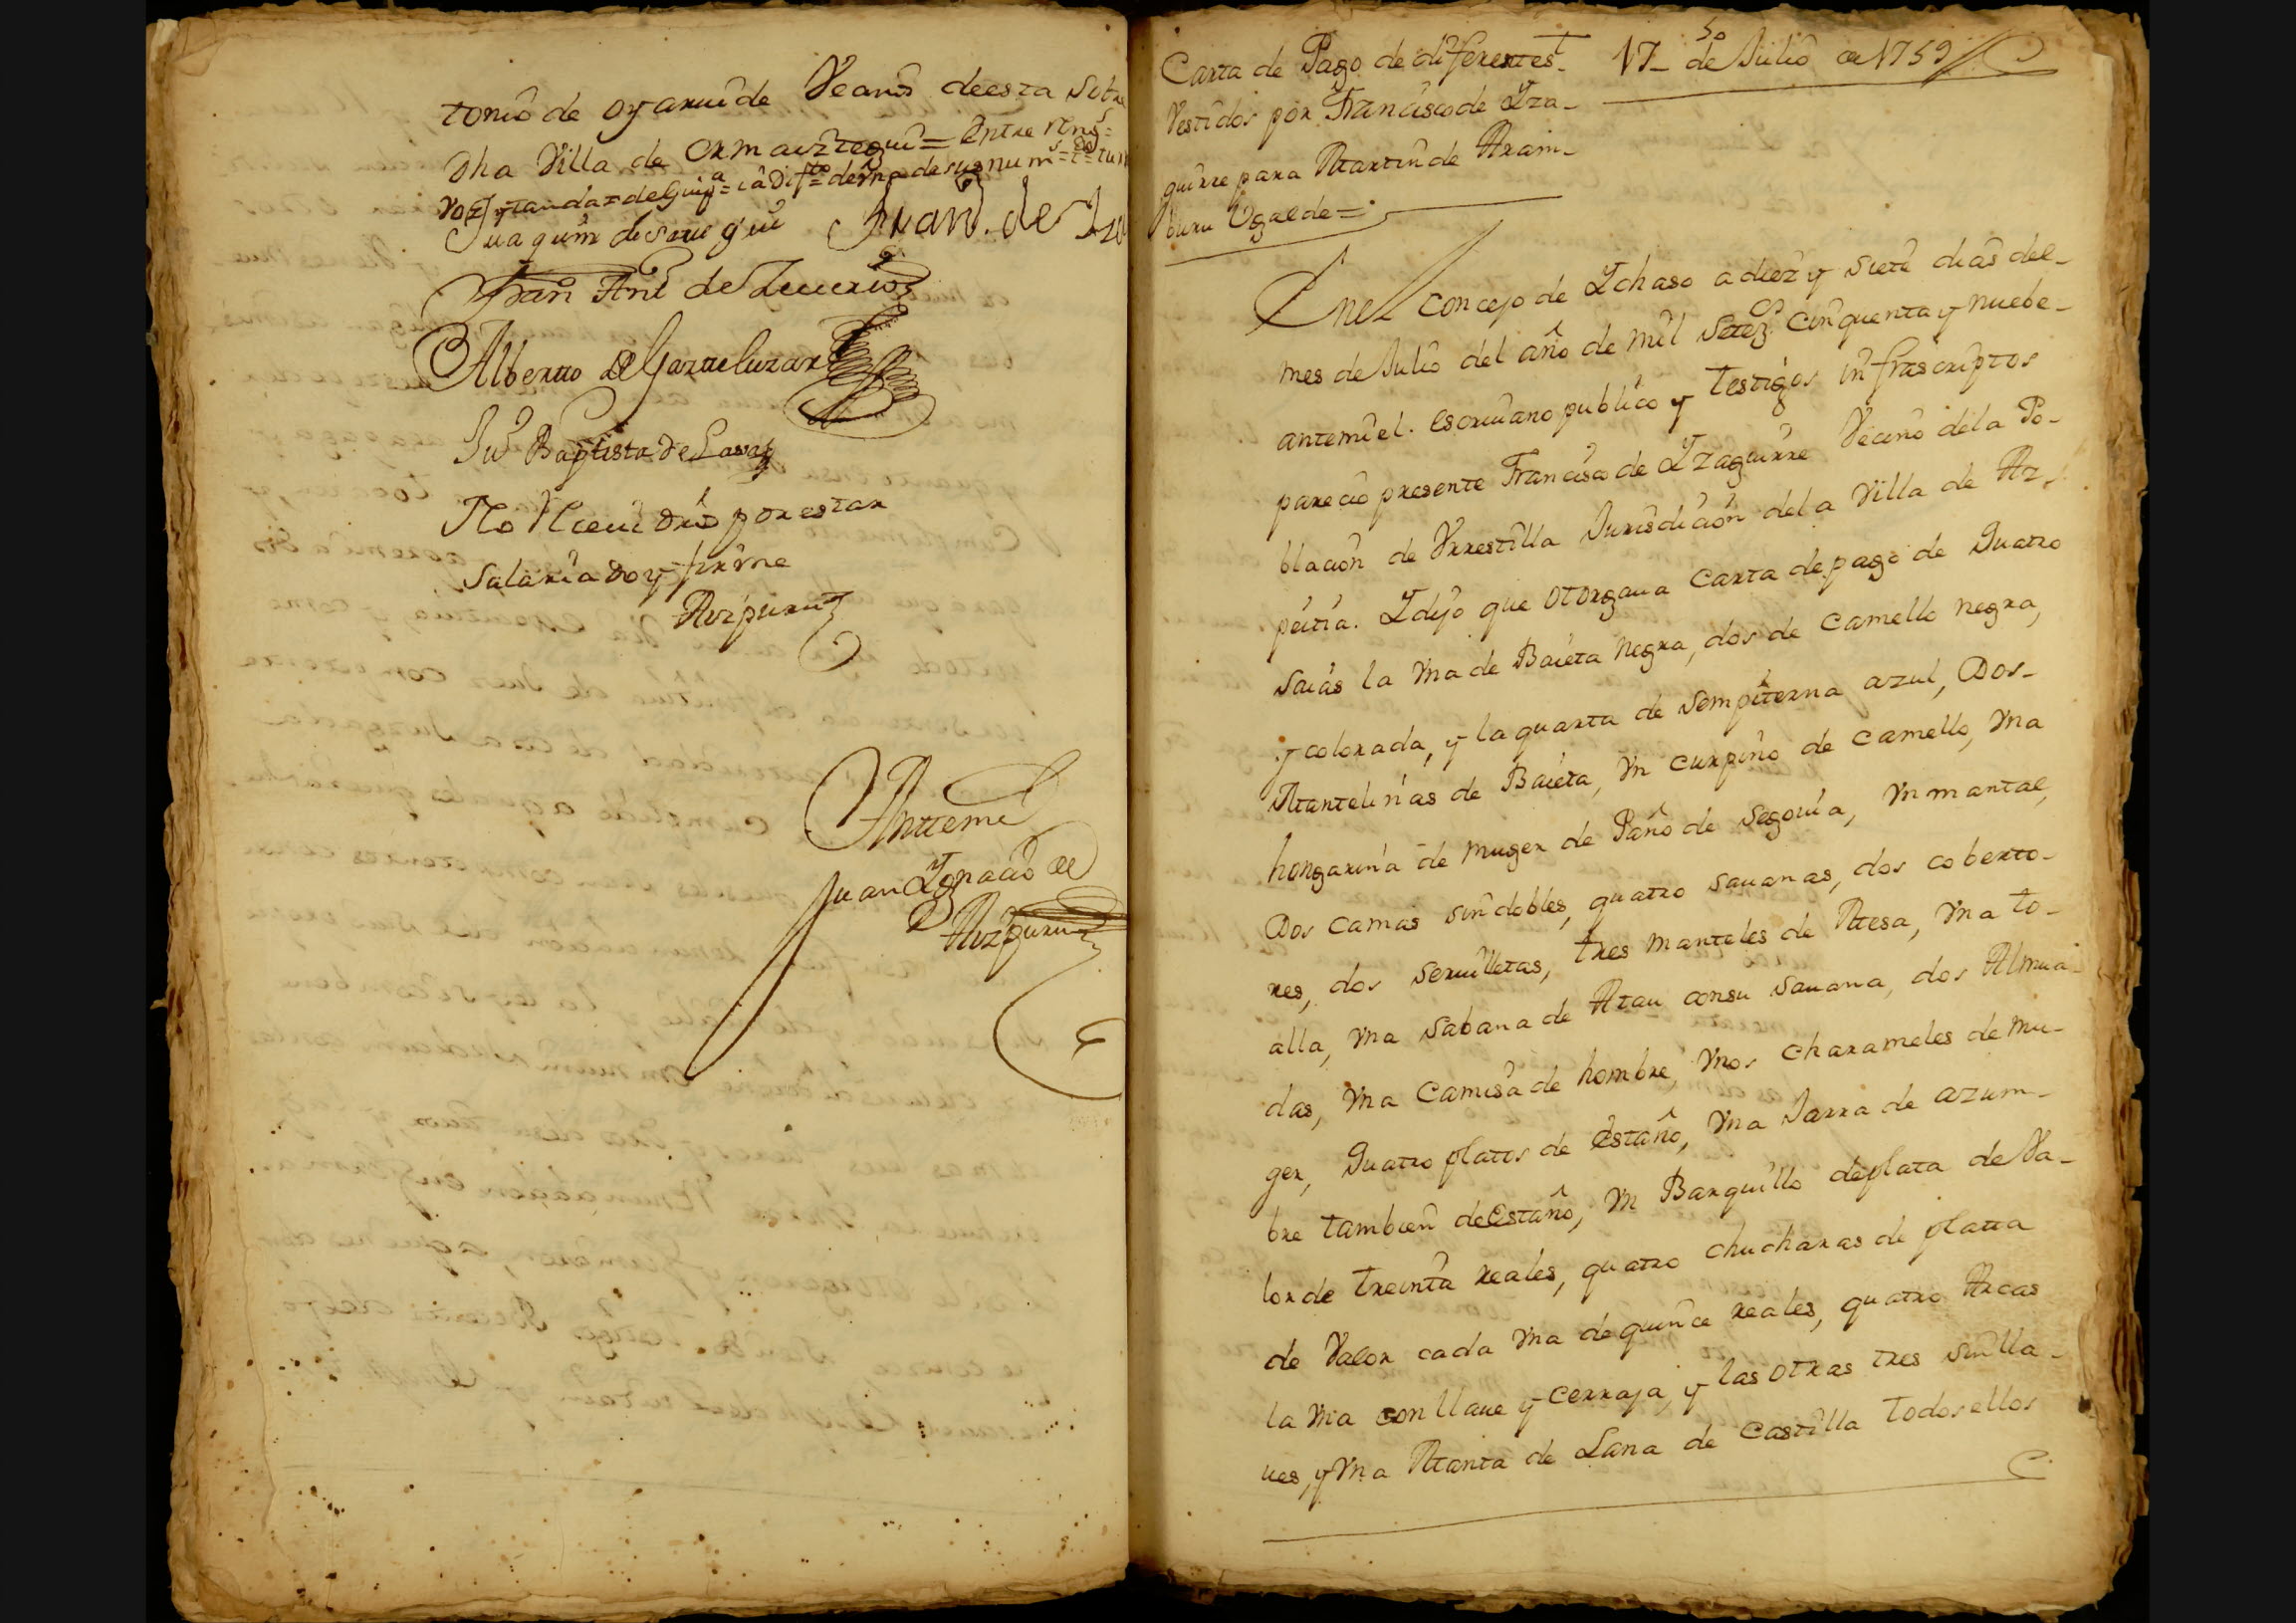 tonio de oyarui de Vecino de esta sobre
dha Villa de ormaiztegui = Entre reng.s =
Juaquin de Sarregui Juan de
Fran Ant.o de
Alberto de Garateluzar
Ju.o Baptista de
No lleui dros por estar
salariado y firme
Aizpuru
Antte mi
Juan Ygnacio de
Aizpuru
Carta de Pago de diferentes
17 de Julio de 1759
Vestidos por Francisco de Yza-
guirre para Martin de Aram-
buru Ugalde =
En el concejo de Ychaso a diez y siete dias del-
mes de Julio del año de mil setez.s cinquenta y nuebe-
ante mi el escriuano publico y testigos infrascriptos
parecio presente Francisco de Yzaguirre Vecino de la Po-
blacion de Vrrestilla Jurisdicion de la Villa de Az-
peitia. Y dijo que otorgaua carta de pago de quatro
saias la Vna de Baieta negra, dos de camello negra,
y colorada, y la quarta de sempiterna azul, Dos-
Mantelinas de Baieta, Vn curpiño de camello, Vna
hongarina de muger de Paño de segouia, Vn mantal,
Dos camas sin dobles, quatro sauanas, dos coberto-
res, dos seruilletas, tres manteles de Mesa, Vna to-
alla, Vna sabana de Atau con su sauana, dos Almua-
das, Vna camisa de hombre, Vnos charameles de mu-
ger, quatro platos de estaño, Vna Jarra de azum-
bre tambien de Estaño, Vn Barquillo de plata de Va-
lor de treinta reales, quatro chucharas de platta
de Valor cada Vna de quince reales, quatro Arcas
la Vna con llaue y cerraja, y las otras tres sin lla-
ues, y Vna Manta de Lana de castilla todos ellos